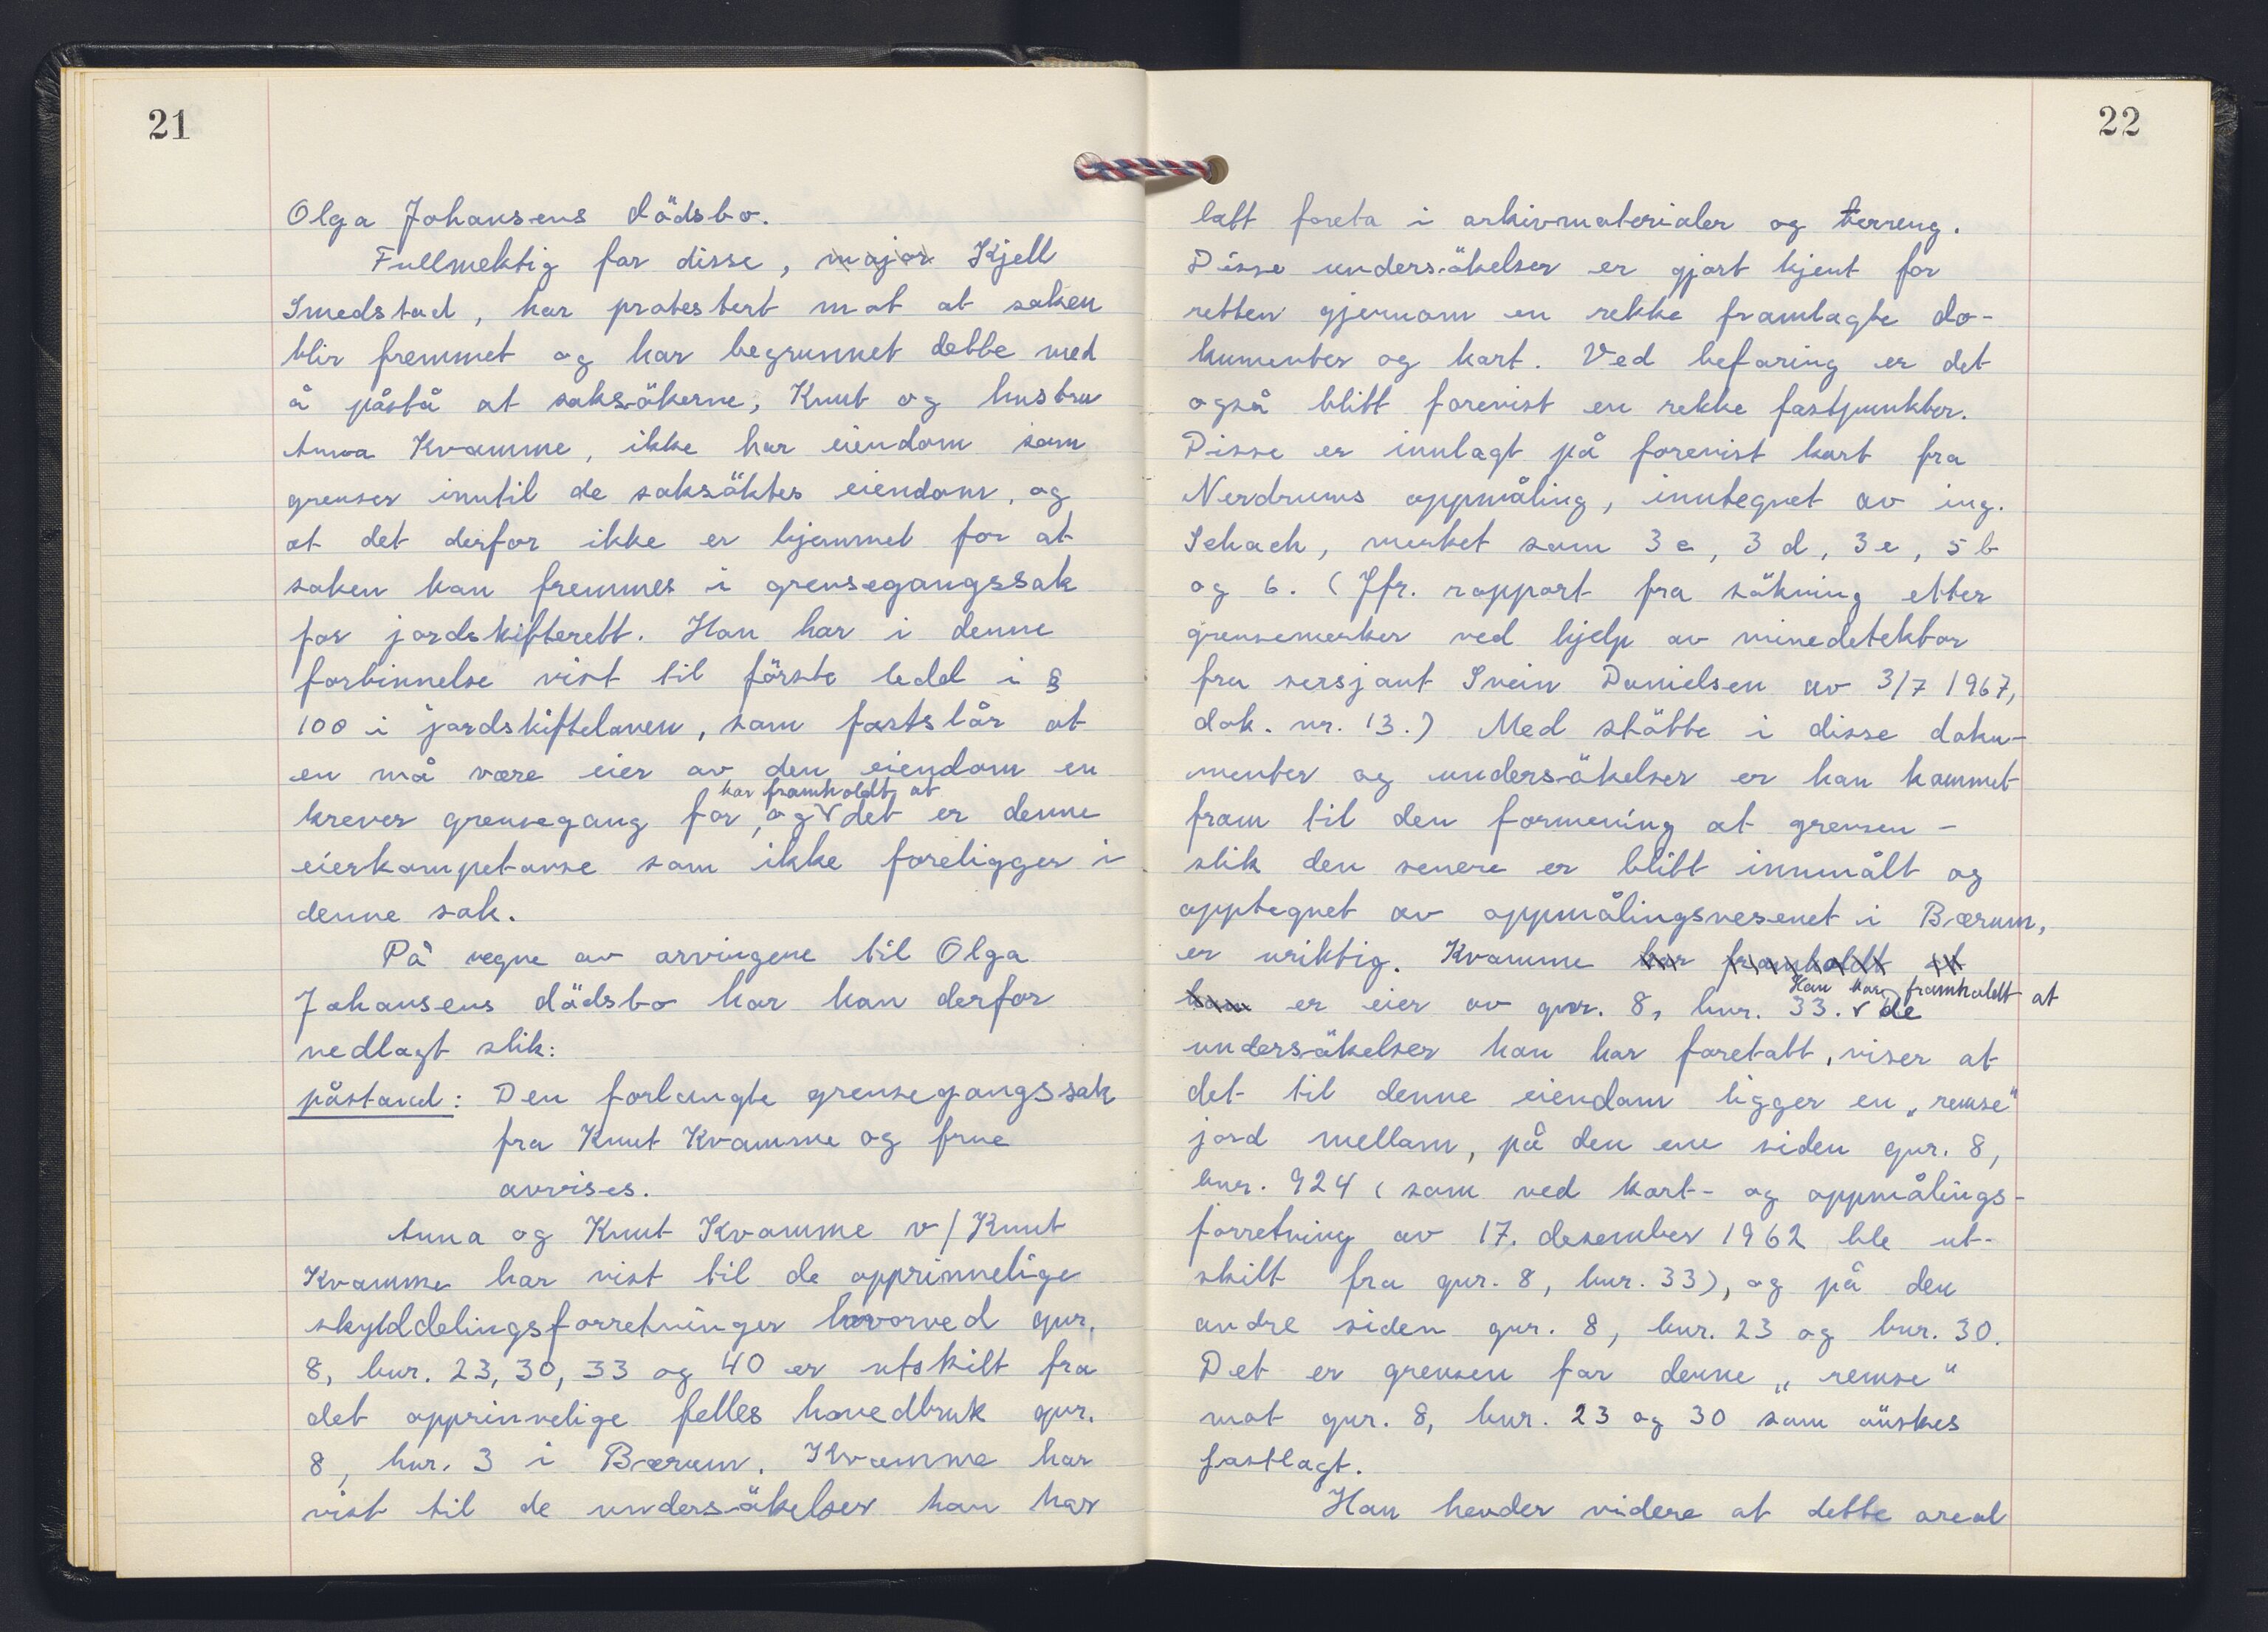 21
Olga Johansens dödsbo.
Fullmektig for disse, major Kjell
Smedstad, har protestert mot at saken
blir fremmet og har begrunnet dette med
å påstå at saksökerne, Knut og hustru
Anna Kvamme, ikke har eiendom som
grenser inntil de saksöktes eiendom, og
at det derfor ikke er hjemmel for at
saken kan fremmes i grensegangssak
for jordskifterett. Han har i denne
forbinnelse vist til förste ledd i §
100 i jordskifteloven, som fastslår at
en må være eier av den eiendom en
har framholdt, at
krever grensegang for, og v det er denne
eierkompetanse som ikke foreligger i
denne sak.
På vegne av arvingene til Olga
Johansens dödsbo har han derfor
nedlagt slik:
påstand: Den forlangte grensegangssak
fra Knut Kvamme og frue
avvises.
Anna og Knut Kvamme v/ Knut
Kvamme har vist til de opprinnelige
skylddelingsforretninger hvorved gnr.
8, bnr. 23, 30, 33 og 40 er utskilt fra
det opprinnelige felles hovedbruk gnr.
8, bnr. 3 i Bærum. Kvamme har
vist til de undersökelser han har
22
latt foreta i arkivmaterialer og terreng.
Disse undersökelser er gjort kjent for
retten gjennom en rekke framlagte do-
kumenter og kart. Ved befaring er det
også blitt forevist en rekke fastpunkter.
Disse er innlagt på forevist kart fra
Nerdrums oppmåling, inntegnet av ing.
Schach, merket som 3c, 3d, 3e, 5b
og 6. (Jfr. rapport fra sökning etter
grensemerker ved hjelp av minedetektor
fra sersjant Svein Danielsen av 3/7 1967,
dok. nr. 13.) Med stötte i disse doku-
menter og undersökelser er han kommet
fram til den formening at grensen -
slik den senere er blitt innmålt og
opptegnet av oppmålingsvesenet i Bærum,
er uriktig. Kvamme har framholdt at
Han har framholdt at
han er eier av gnr. 8, bnr. 33. v de
undersökelser han har foretatt, viser at
det til denne eiendom ligger en „remse"
jord mellom, på den ene siden gnr. 8,
bnr. 924 (som ved kart- og oppmålings-
forretning av 17. desember 1962 ble ut-
skilt fra gnr. 8, bnr. 33), og på den
andre siden gnr. 8, bnr. 23 og bnr. 30.
Det er grensen for denne „remse"
mot gnr. 8, bnr. 23 og 30 som önskes
fastlagt.
Han hevder videre at dette areal